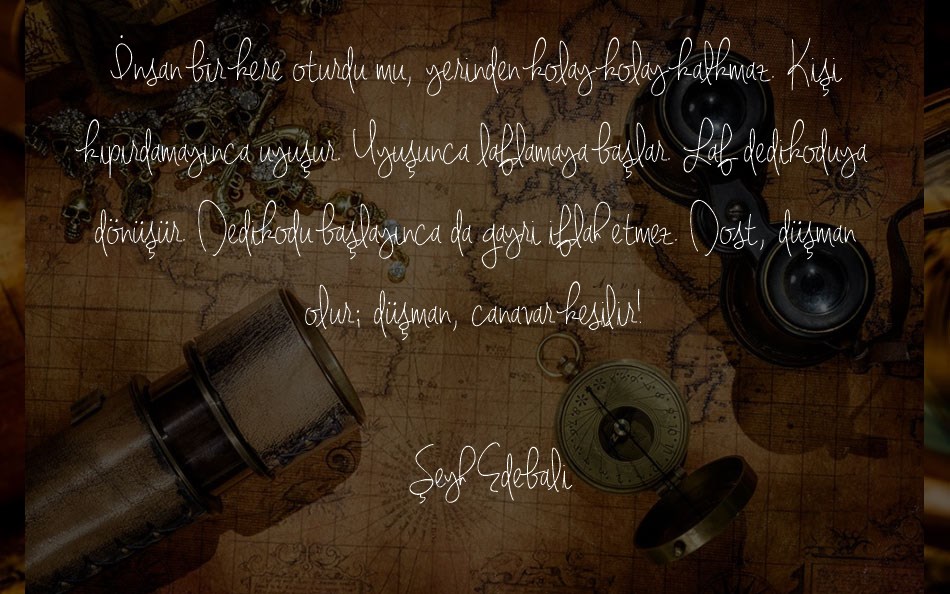 İnsan bir kere oturdu mu, yerinden kolay kolay kalkmaz. Kişi
kıpırdamayınca uyuşur. Uyuşunca laflamaya başlar. Laf dedikoduya
dönüşür. Dedikodu başlayınca da gayri iflah etmez. Dost, düşman
olur; düşman, canavar kesilir!
Şeyh Edebali